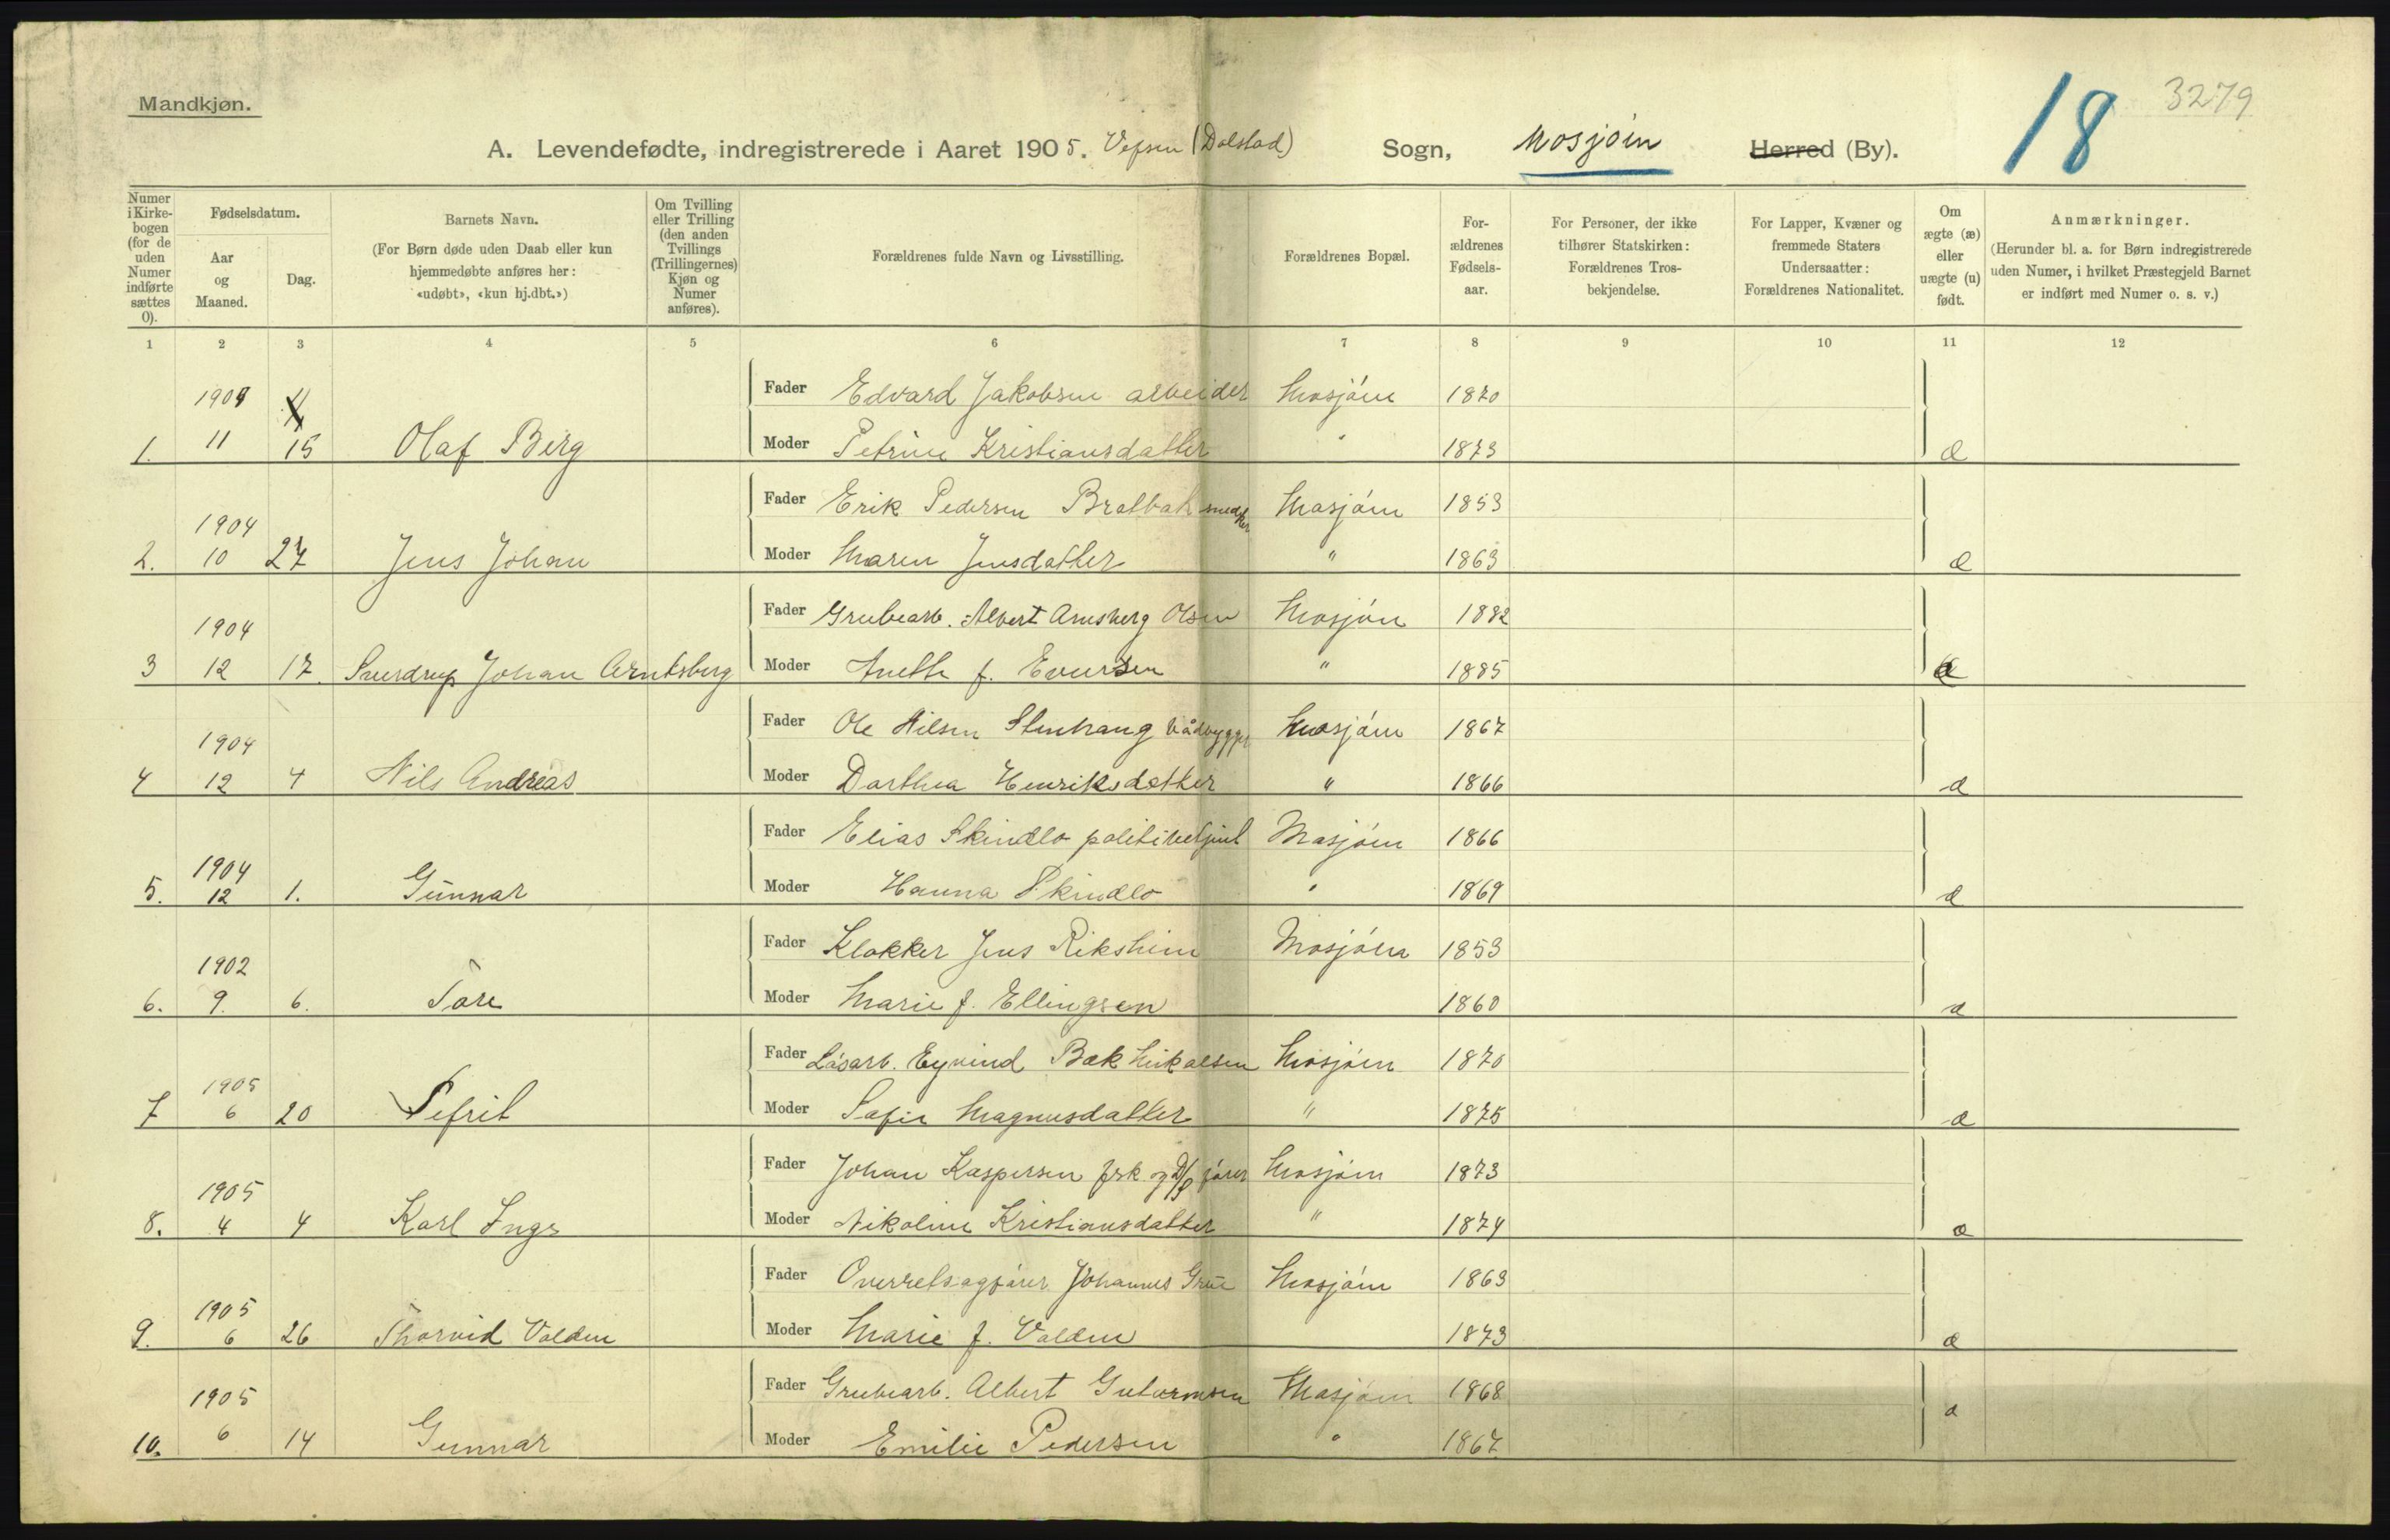 Mandkjøn.
3279
18
A. Levendefødte, indregistrerede i Aaret 1905. Vefsen (Dolstad) Sogn, Mosjøen Herred (By).
Numer i Kirke-bogen (for de uden Numer indførte sættes 0).
Fødselsdatum.
Aar og Maaned.
Dag.
Barnets Navn.
(For Børn døde uden Daab eller kun hjemmedøbte anføres her: «udøbt», «kun hj.dbt.»)
Om Tvilling eller Trilling (den anden Tvillings (Trillingernes) Kjøn og Numer anføres).
Forældrenes fulde Navn og Livsstilling.
Forældrenes Bopæl.
For-ældrenes Fødsels-aar.
For Personer, der ikke tilhører Statskirken: Forældrenes Tros-bekjendelse.
For Lapper, Kvæner og fremmede Staters Undersaatter: Forældrenes Nationalitet.
Om ægte (æ) eller uægte (u) født.
Anmærkninger.
(Herunder bl. a. for Børn indregistrerede uden Numer, i hvilket Præstegjeld Barnet er indført med Numer o. s. v.)
1 2 3 4 5 6 7 8 9 10 11 12
1904 Fader Edvard Jakobsen arbeider Mosjøen 1870
1. 11 15 Olaf Berg Moder Petrine Kristiansdatter " 1873 æ
1904 Fader Erik Pedersen Bratbak snedker Mosjøen 1853
2. 10 27 Jens Johan Moder Maren Jensdatter " 1863 æ
1904 Fader Grubearb. Albert Arnsberg Olsen Mosjøen 1882
3 12 17. Sverdrup Johan Arntsberg Moder Anette f. Evensen " 1885 æ
1904 Fader Ole Nilsen Stenhaug bådbygger Mosjøen 1867
4 12 4 Nils Andreas Moder Dorthea Henriksdatter " 1866 æ
1904 Fader Elias Skindlo politibetjent Mosjøen 1866
5. 12 1. Gunnar Moder Hanna Skindlo " 1869 æ
1902 Fader Klokker Jens Riksheim Mosjøen 1853
6. 9. 6. Tore Moder Marie f. Ellingsen 1860 æ
1905 Fader Løsarb. Eyvind Bæk Mikalsen Mosjøen 1870
7 6 20 Petrit Moder Sofie Magnusdatter " 1875 æ
1905 Fader Johan Kaspersen fsk. og D/S fører Mosjøen 1873
8. 4 4 Karl Inge Moder Nikoline Kristiansdatter " 1874 æ
1905 Fader Overretsagfører Johannes Mosjøen 1863
9. 6 26 Thorvid Volden Moder Marie f. Volden 1873 æ
1905 Fader Grubearb. Albert Gutormsen Mosjøen 1868 æ
10. 6 14 Gunnar Moder Emilie Pedersen " 1867.